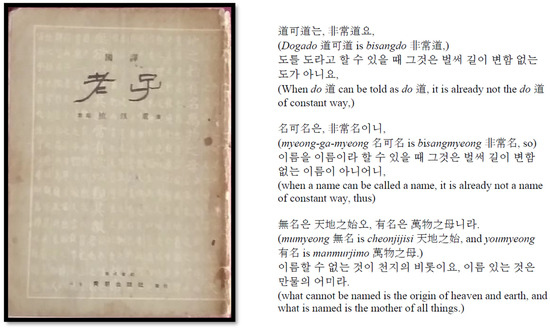 國譯
老子
道可道는, 非常道요,
(Dogado 道可道 is bisangdo 非常道,)
도를 도라고 할 수 있을 때 그것은 벌써 길이 변함 없는
도가 아니요,
(When do 道 can be told as do 道, it is already not the do 道
of constant way,)
名可名은, 非常名이니,
(myeong-ga-myeong 名可名 is bisangmyeong 非常名, so)
이름을 이름이라 할 수 있을 때 그것은 벌써 길이 변함
없는 이름이 아니어니,
(when a name can be called a name, it is already not a name
of constant way, thus)
無名은 天地之始오, 有名은 萬物之母니라.
(mumyeong 無名 is cheonjijisi 天地之始, and youmyeong
有名 is manmurjimo 萬物之母.)
이름할 수 없는 것이 천지의 비롯이요, 이름 있는 것은
만물의 어미라.
(what cannot be named is the origin of heaven and earth, and
what is named is the mother of all things.)